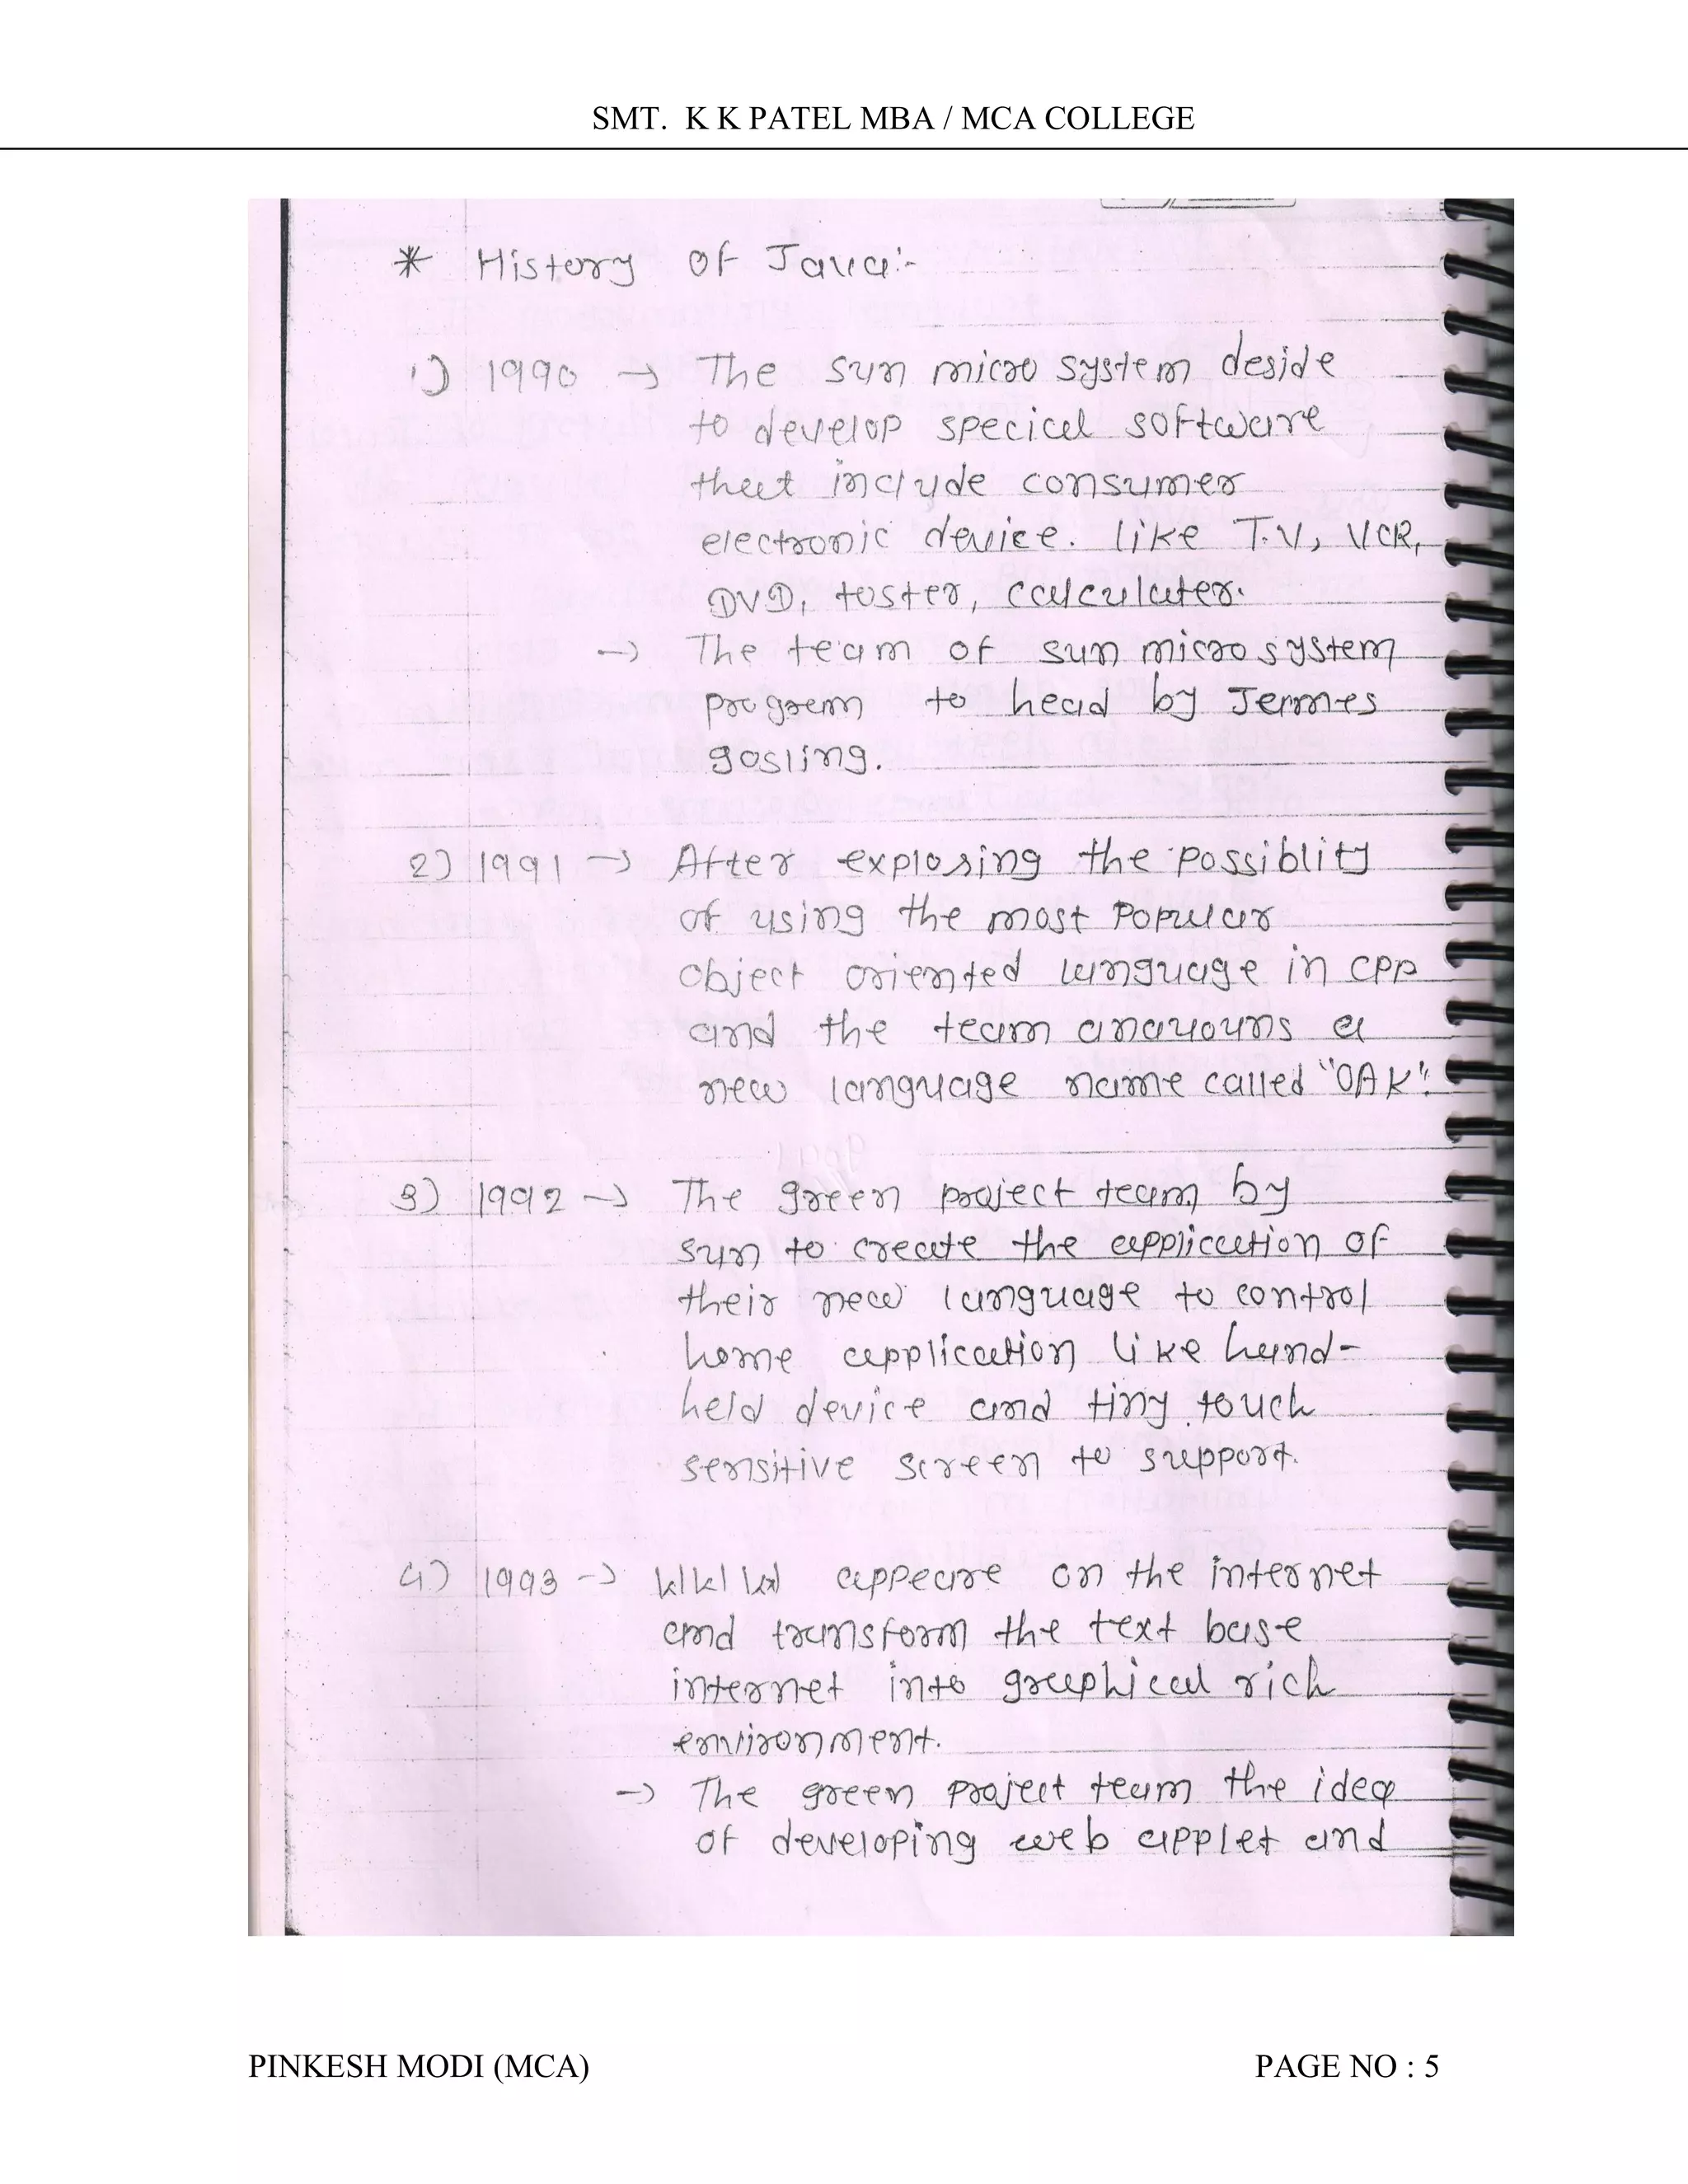 SMT. K K PATEL MBA / MCA COLLEGE
* History of Java:-
1) 1990 → The sun micro system deside
to develop special software
that include consumer
electronic device. like T.V, VCR,
DVD, toster, calculater.
→ The team of sun micro system
program to head by Jemmes
gosling.
2) 1991 → After explosing the possiblity
of using the most Popular
object oriented language in cpp
and the team anauouns a
new language name called "OAK".
3) 1992 → The green project team by
sun to create the application of
their new language to control
home application like hand-
held device and tiny touch
sensitive screen to support.
4) 1993 → WWW appeare on the internet
and transform the text base
internet into graphical rich
environment.
→ The green project team the idea
of developing web applet and
PINKESH MODI (MCA)
PAGE NO : 5